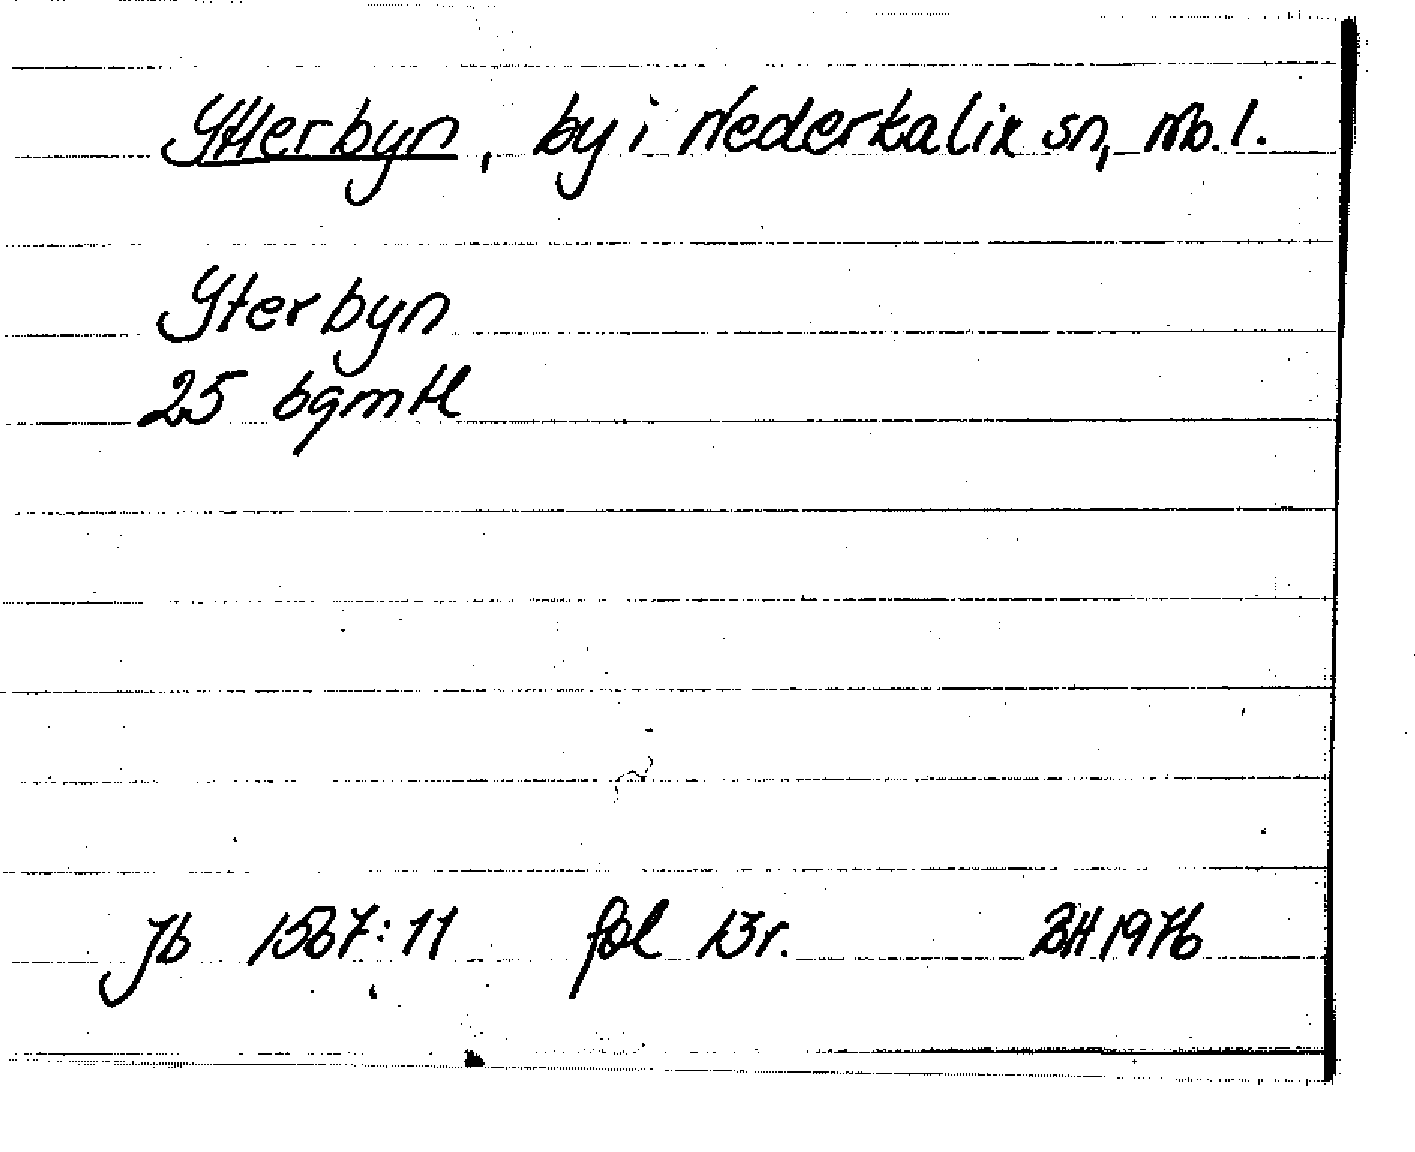 Ytterbyn, by i Nederkalix sn, Nb. l.
Yterbyn
25 bgmtl
Jb 1567:11 fol 13r. BH 1976